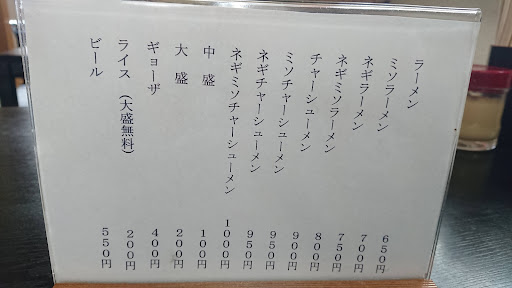 ラーメン 650円
ミソラーメン 700円
ネギラーメン 750円
ネギミソラーメン 800円
チャーシューメン 900円
ミソチャーシューメン 950円
ネギチャーシューメン 950円
ネギミソチャーシューメン 1000円
中 盛 100円
大 盛 200円
ギョーザ 400円
ライス (大盛無料) 200円
ビール 550円